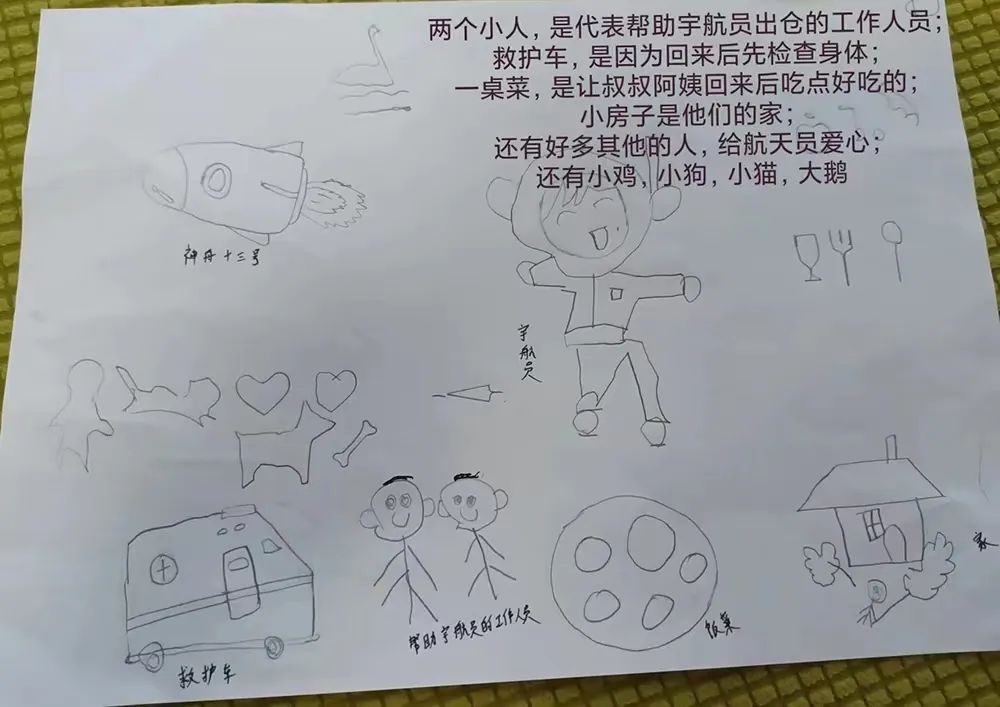 两个小人，是代表帮助宇航员出仓的工作人员；
救护车，是因为回来后先检查身体；
一桌菜，是让叔叔阿姨回来后吃点好吃的；
小房子是他们的家；
还有好多其他的人，给航天员爱心；
还有小鸡，小狗，小猫，大鹅
神舟十三号
宇航员
家
帮助宇航员的工作人员
饭菜
救护车